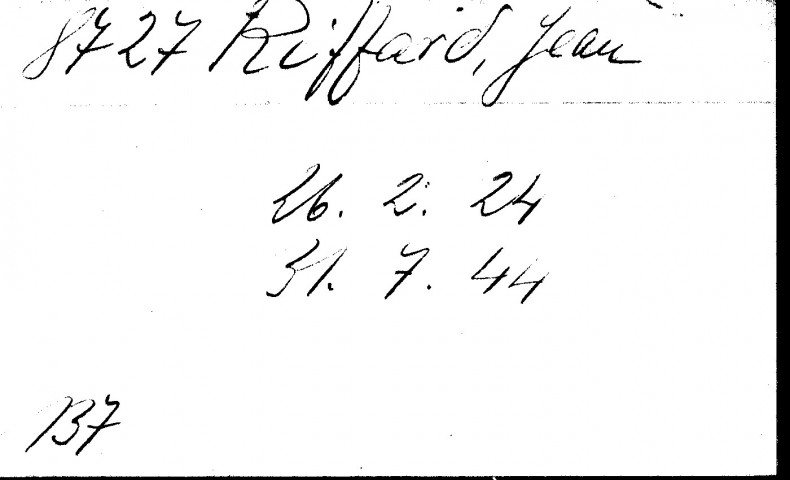 8727 Riffard, Jean
26. 2. 24
31. 7. 44
137